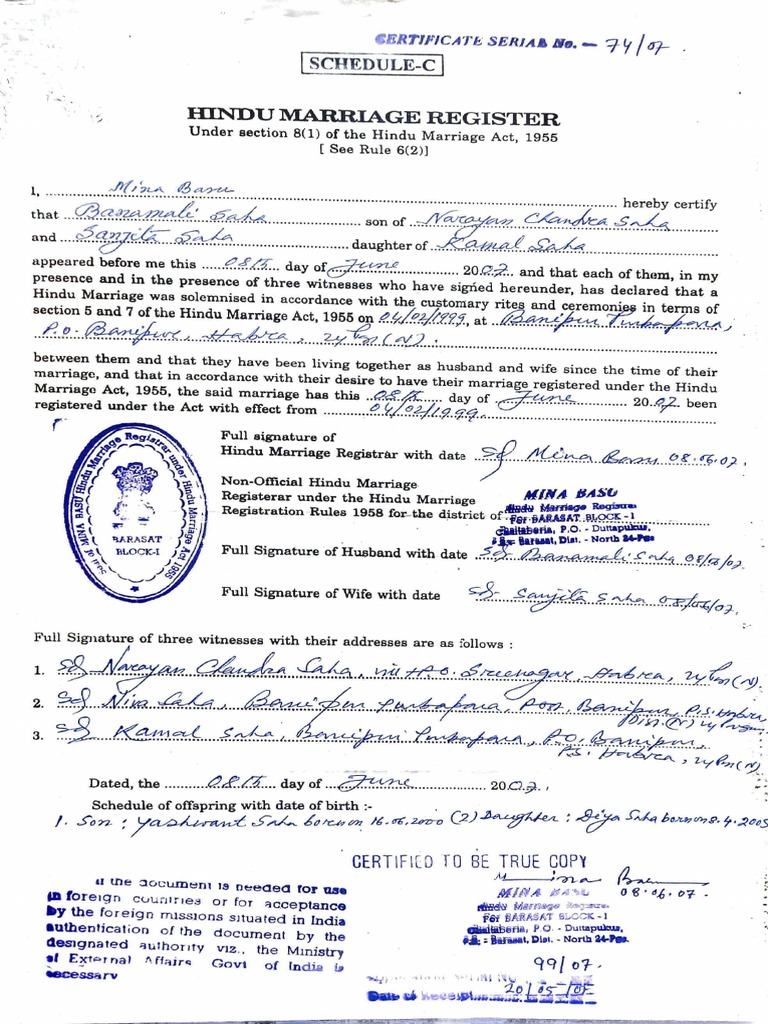 CERTIFICATE SERIAL No. - 74/07
SCHEDULE-C
HINDU MARRIAGE REGISTER
Under section 8(1) of the Hindu Marriage Act, 1955
[ See Rule 6(2)]
I, Mina Basu hereby certify
that Banamali Saha son of Narayan Chandra Saha
and Sanjita Saha daughter of Kamal Saha
appeared before me this 08th day of June 2007 and that each of them, in my
presence and in the presence of three witnesses who have signed hereunder, has declared that a
Hindu Marriage was solemnised in accordance with the customary rites and ceremonies in terms of
section 5 and 7 of the Hindu Marriage Act, 1955 on 04/02/1999, at Banipur Purbapara,
P.O. Banipur, Habra, 24 Pgs (N).
between them and that they have been living together as husband and wife since the time of their
marriage, and that in accordance with their desire to have their marriage registered under the Hindu
Marriage Act, 1955, the said marriage has this 08th day of June 2007 been
registered under the Act with effect from 04/02/1999.
Seal of MINA BASU Hindu Marriage Registrar under Hindu Marriage Act 1955
BARASAT
BLOCK-I
Full signature of
Hindu Marriage Registrar with date Sd/ Mina Basu 08.06.07.
Non-Official Hindu Marriage
Registerar under the Hindu Marriage
Registration Rules 1958 for the district of
MINA BASU
Hindu Marriage Registrar
For BARASAT BLOCK - I
Chaltaberia, P.O. - Duttapukur,
P.S.- Barasat, Dist. - North 24-Pgs.
Full Signature of Husband with date Sd/ Banamali Saha 08/06/07.
Full Signature of Wife with date Sd/ Sanjita Saha 08/06/07.
Full Signature of three witnesses with their addresses are as follows :
1. Sd/ Narayan Chandra Saha, Vill + P.O. Sreenagar Habra, 24 Pgs (N).
2. Sd/ Niva Saha, Banipur Purbapara, Banipur, P.S. Habra
Dist. (N) 24
3. Sd/ Kamal Saha, Banipur Purbapara, P.O. Banipur,
P.S. Habra, 24 Pgs (N)
Dated, the 08th day of June 2007.
Schedule of offspring with date of birth :-
1. Son : Yashwant Saha born on 16.06.2000 (2) Daughter : Diya Saha born on 8.4.2005
CERTIFIED TO BE TRUE COPY
Mina Basu
08.06.07.
MINA BASU
Hindu Marriage Registrar
For BARASAT BLOCK - I
Chaltaberia, P.O. - Duttapukur,
P.S. - Barasat, Dist. - North 24-Pgs.
99/07.
20/05/07
Date of
If the document is needed for use
in foreign countries or for acceptance
by the foreign missions situated in India
authentication of the document by the
designated authority viz., the Ministry
of External Affairs Govt of India is
necessary